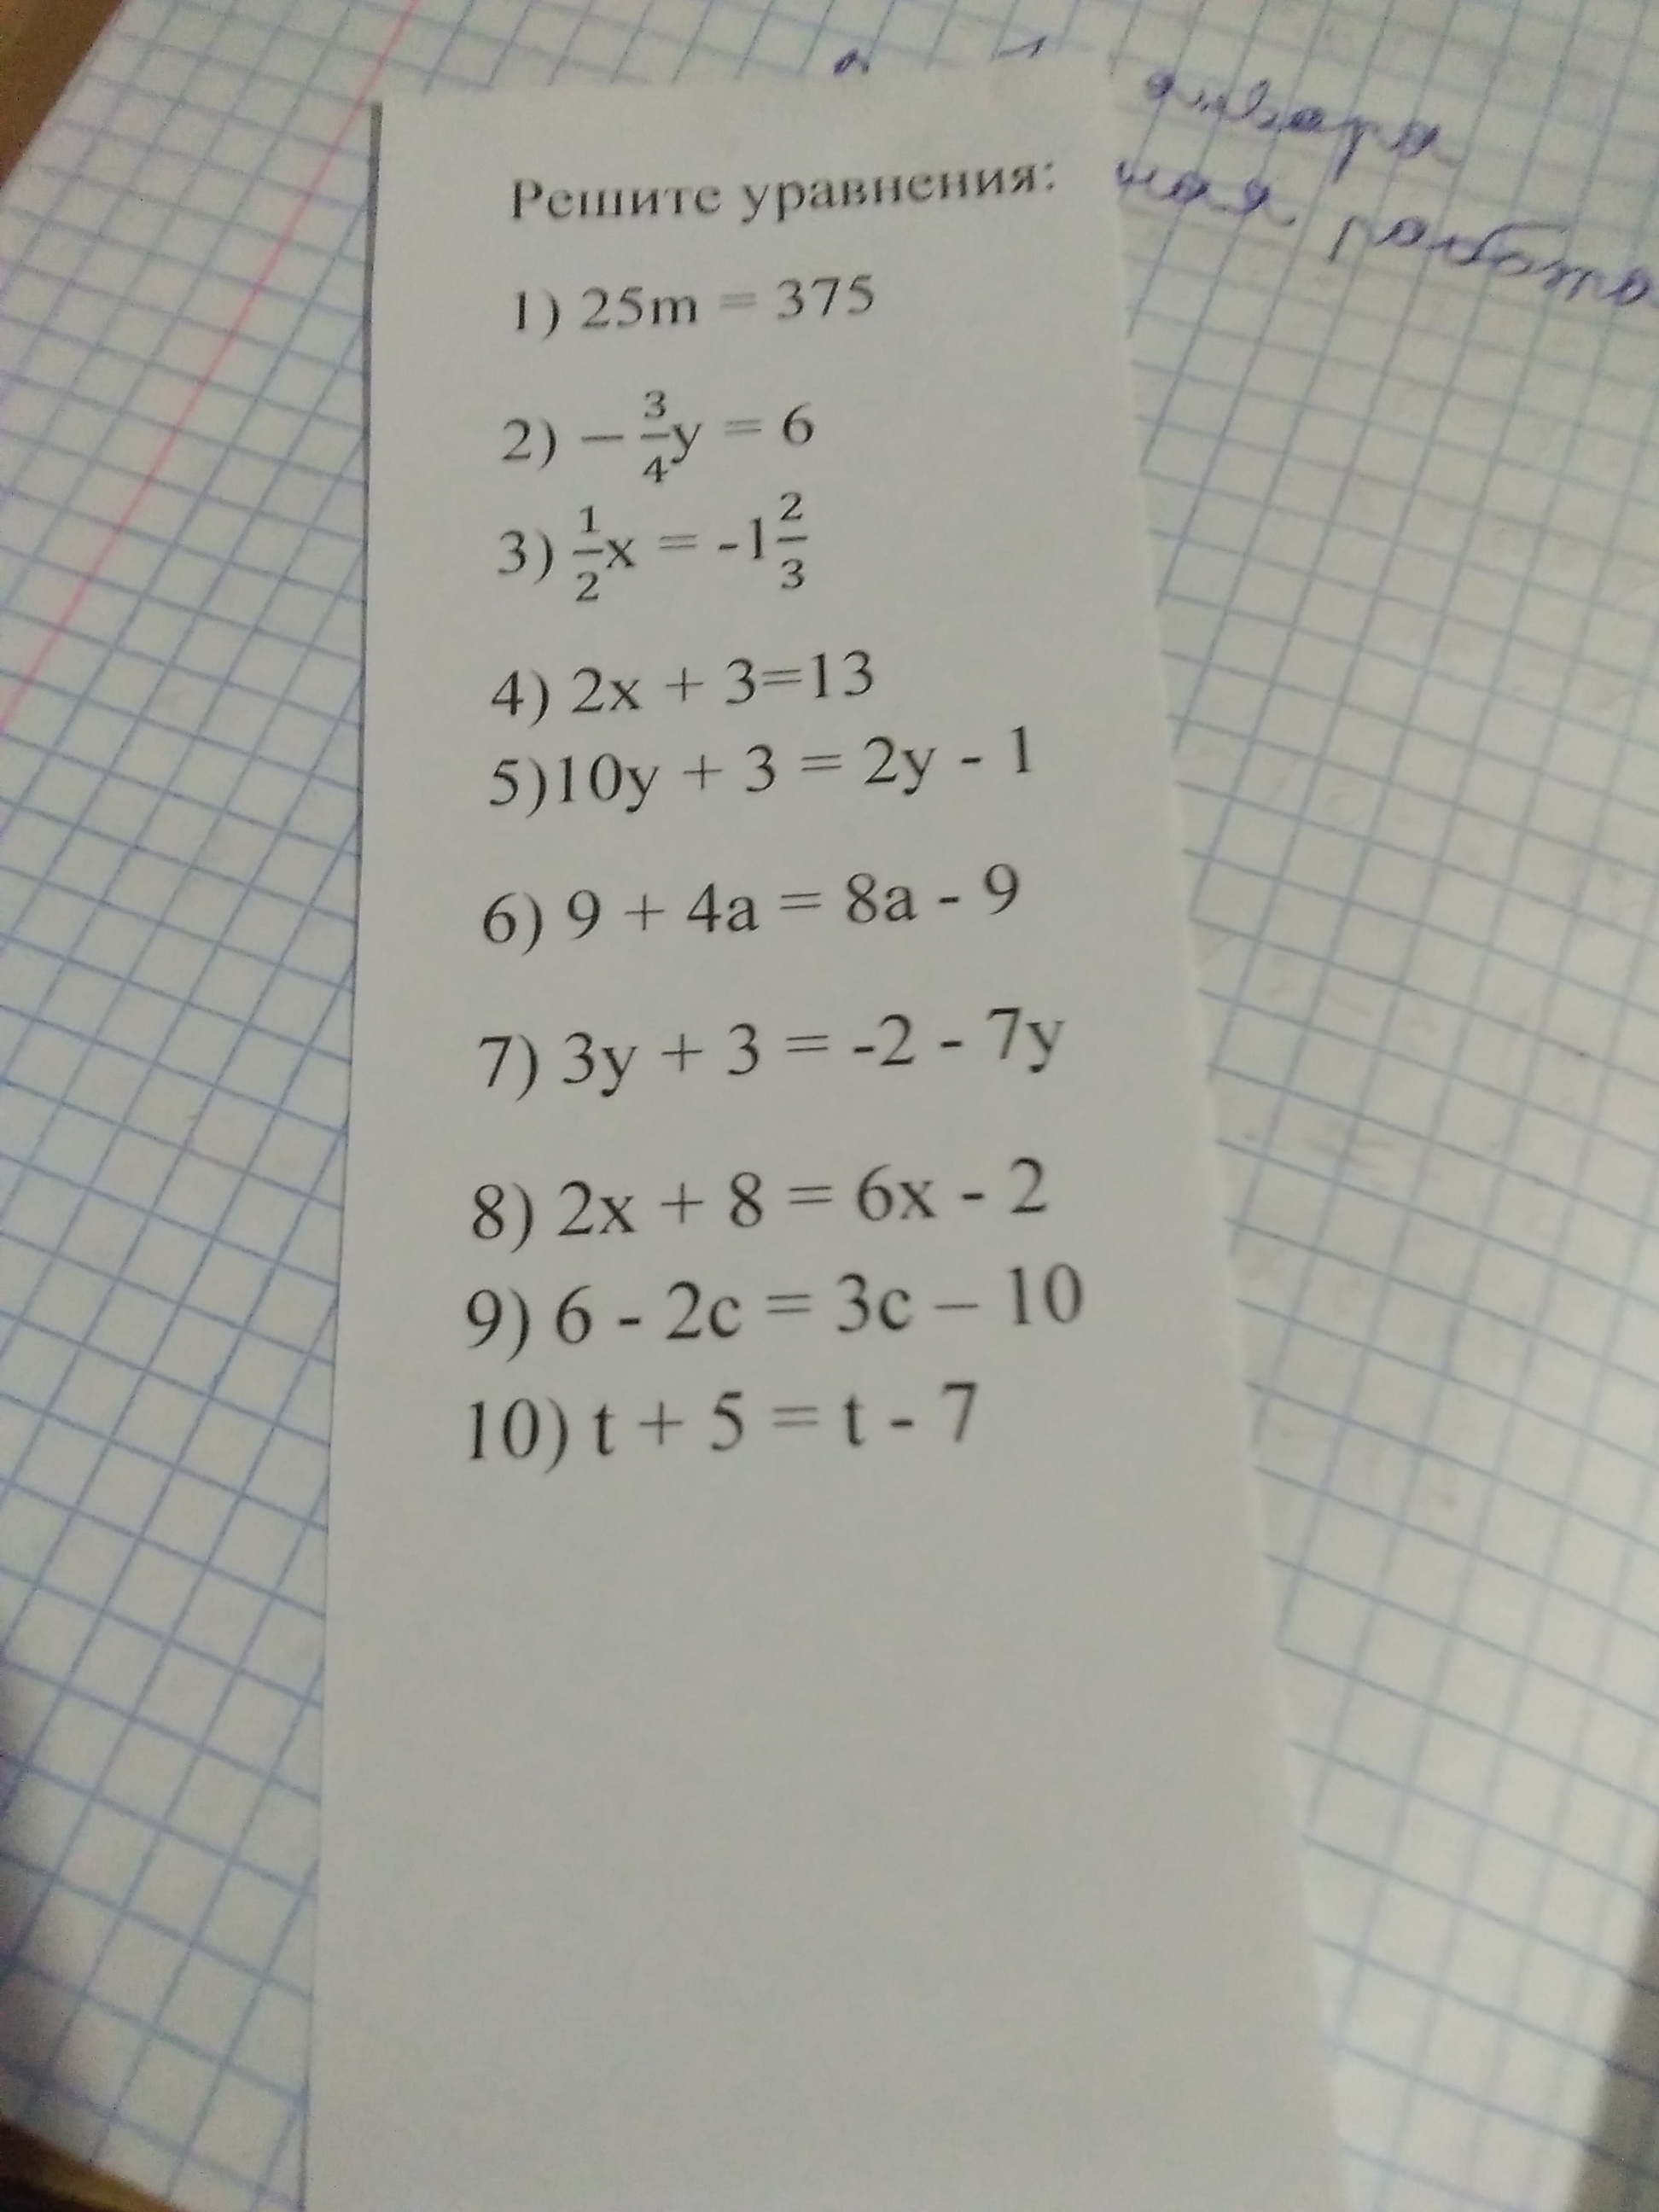 января
ная работа
Решите уравнения:
1) 25m = 375
2) − 3/4 y = 6
3) 1/2 x = -1 2/3
4) 2x + 3=13
5)10y + 3 = 2y - 1
6) 9 + 4a = 8a - 9
7) 3y + 3 = -2 - 7y
8) 2x + 8 = 6x - 2
9) 6 - 2c = 3c – 10
10) t + 5 = t - 7